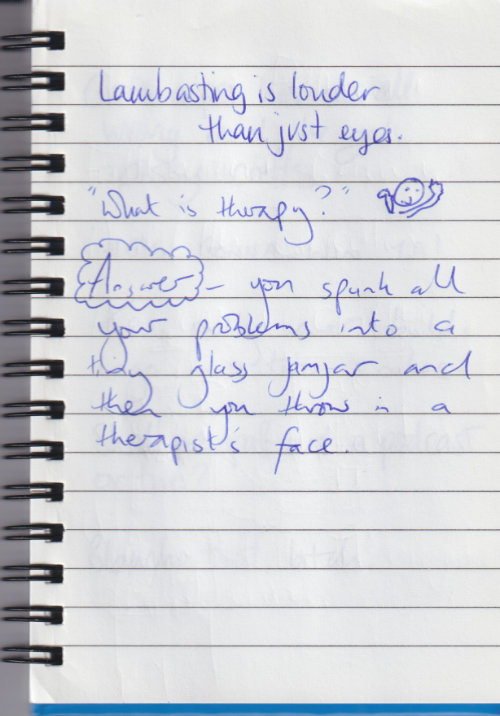 Lambasting is louder
than just eyes.
"What is therapy?"
Answer - you spunk all
your problems into a
tiny glass jamjar and
then you throw in a
therapist's face.